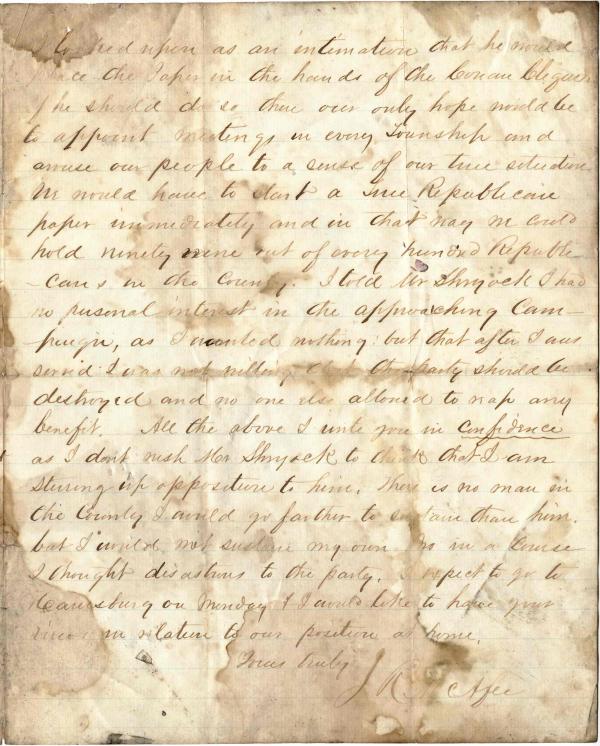 I looked upon as an intimation that he would
place the Paper in the hands of the Covan Clique
If he should do so then our only hope would be
to appoint meetings in every Township and
arouse our people to a sense of our true situation
We would have to start a True Republican
paper immediately and in that way we could
hold ninety nine out of every hundred Republi-
-cans in the County. I told Mr Shryock I had
no personal interest in the approaching Cam-
paign, as I wanted nothing; but that after I was
served I was not willing that the party should be
destroyed and no one else allowed to reap any
benefit. All the above I write you in confidence
as I dont wish Mr Shryock to think that I am
Stiring up opposition to him. There is no man in
the County I would go farther to sustain than him.
but I would not sustain my own in a Course
I thought disastrous to the party. I expect to go to
on Monday & I would like to have your
views in relation to our position at home.
Yours truly
J R McAfee